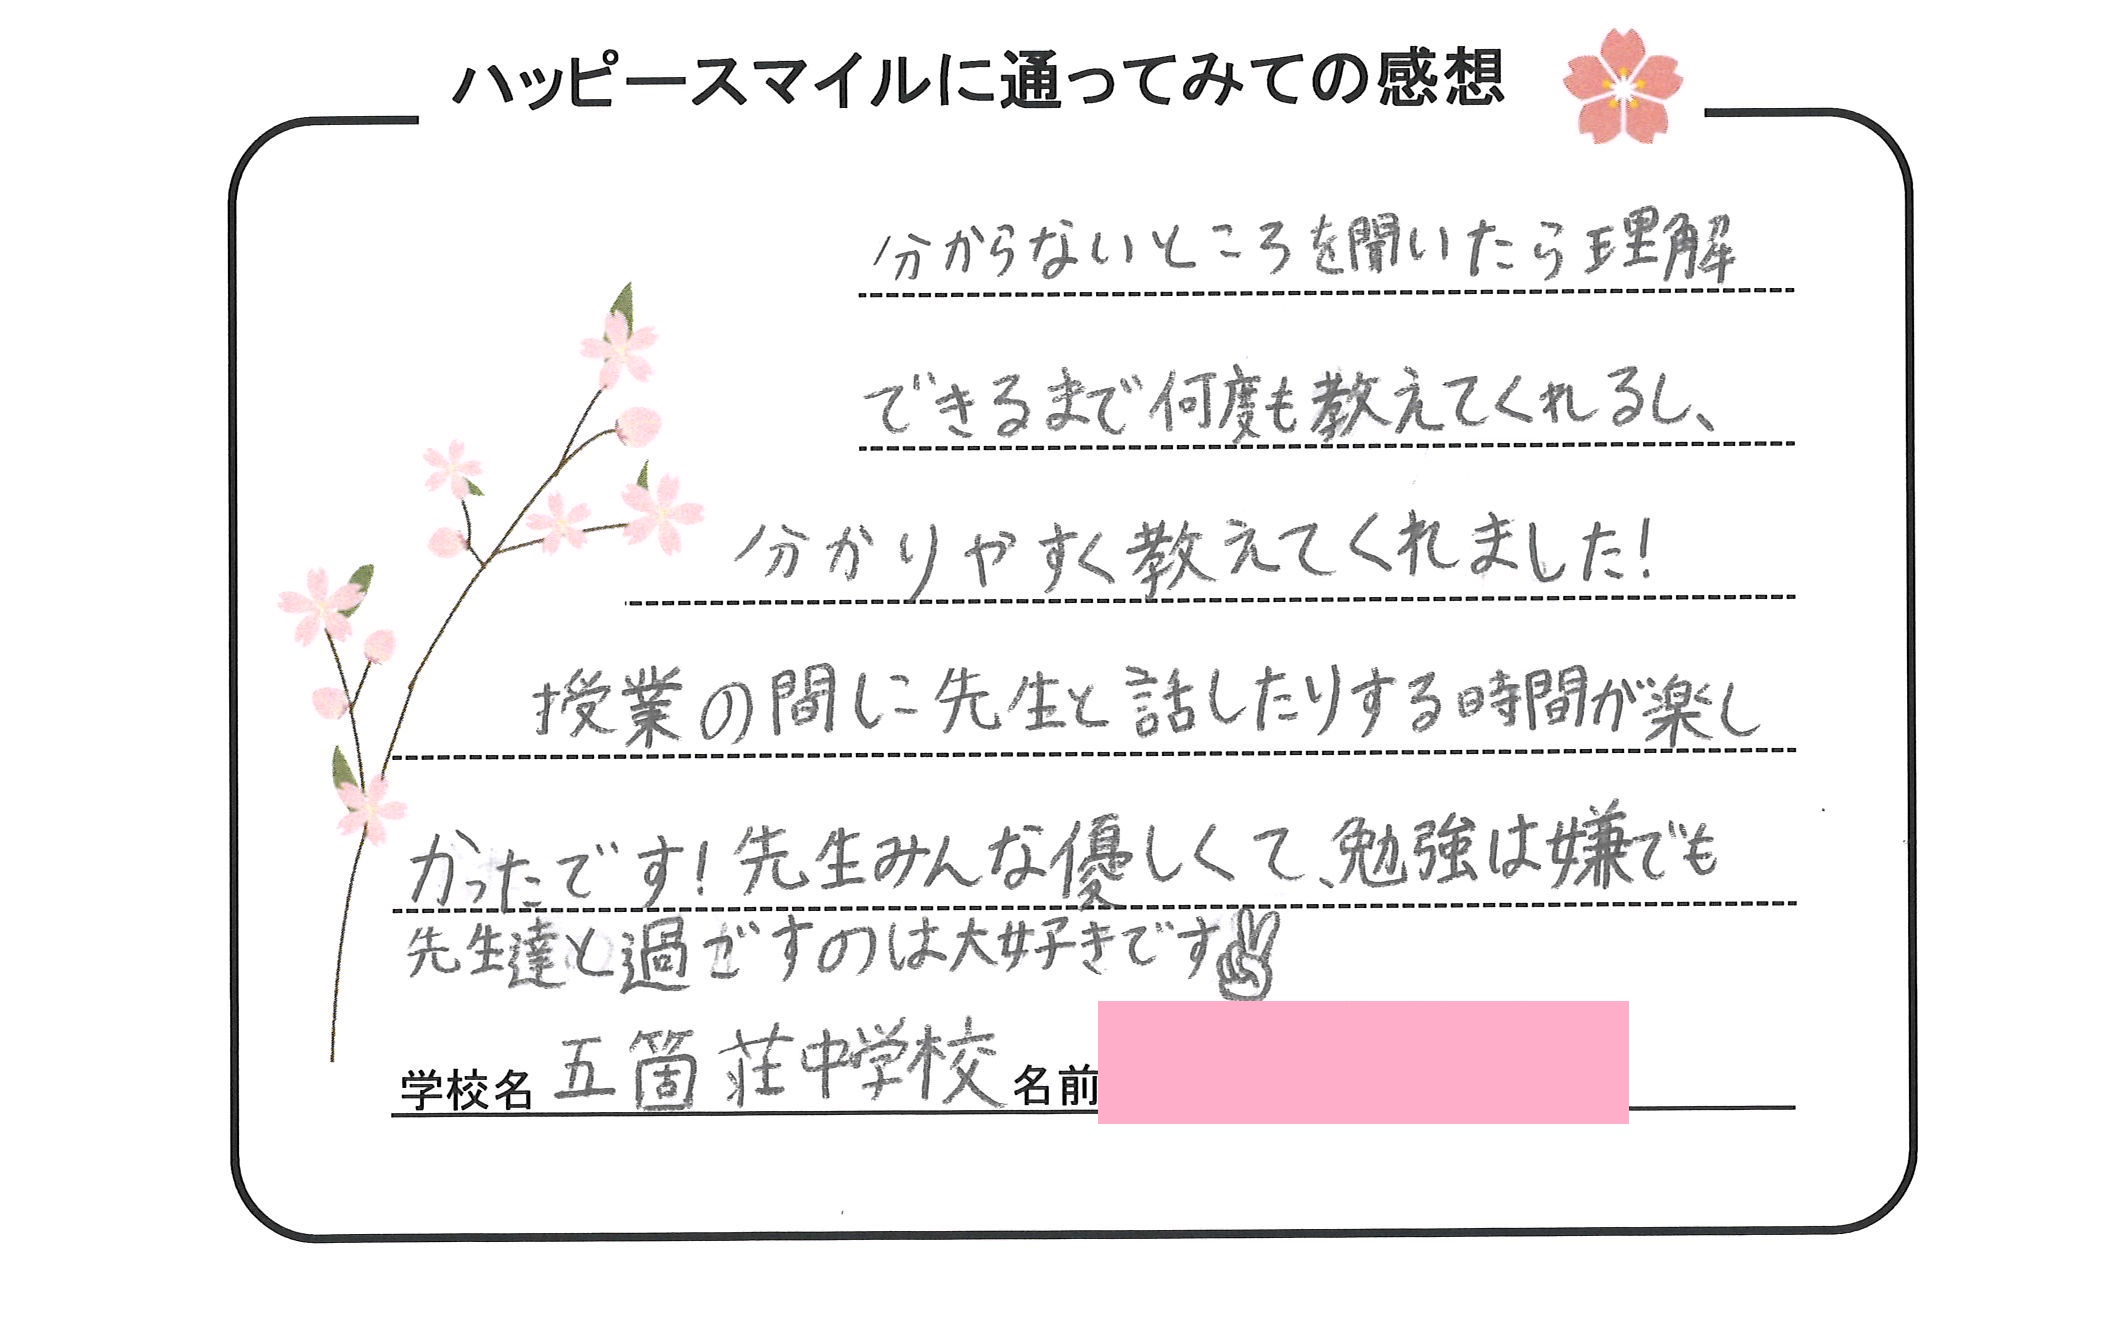 ハッピースマイルに通ってみての感想
分からないところを聞いたら理解
できるまで何度も教えてくれるし、
分かりやすく教えてくれました!
授業の間に先生と話したりする時間が楽し
かったです!先生みんな優しくて、勉強は嫌でも
先生達と過ごすのは大好きです✌
学校名 五箇荘中学校 名前